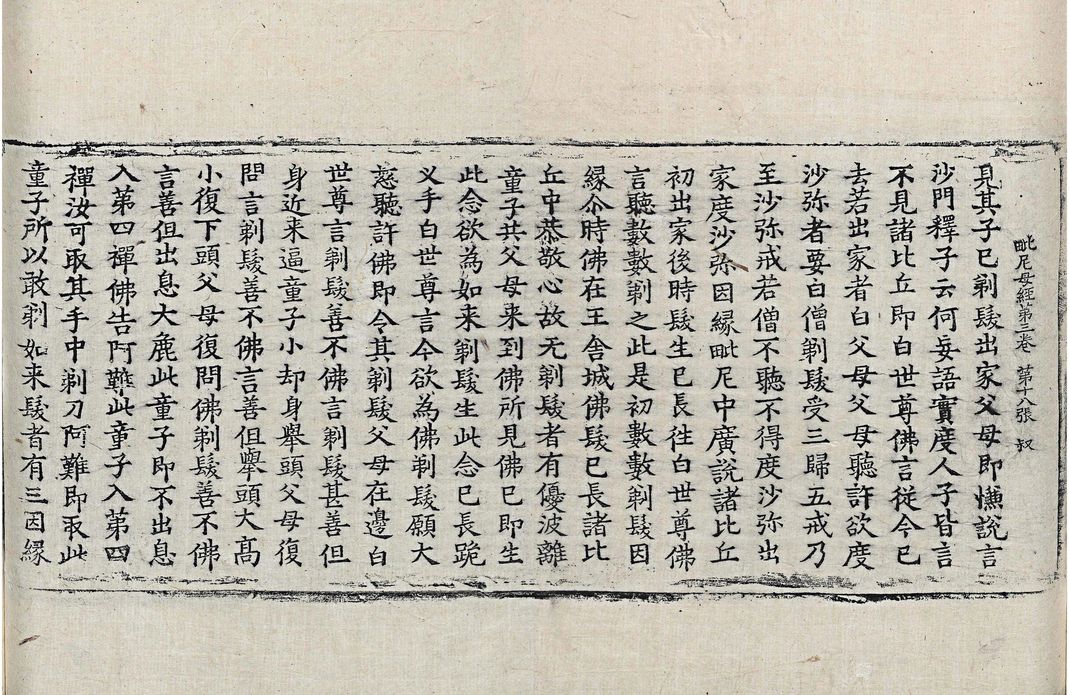 毗尼母經第三卷　第十八張　叔
見其子已剃髮出家父母即憔說言
沙門釋子云何妄語實度人子皆言
不見諸比丘即白世尊佛言從今已
去若出家者白父母父母聽許欲度
沙弥者要白僧剃髮受三歸五戒乃
至沙弥戒若僧不聽不得度沙弥出
家度沙弥因縁毗尼中廣說諸比丘
初出家後時髮生已長往白世尊佛
言聽數數剃之此是初數數剃髮因
縁尒時佛在王舍城佛髮已長諸比
丘中恭敬心故无剃髮者有優波離
童子共父母来到佛所見佛已即生
此念欲為如来剃髮生此念已長跪
义手白世尊言今欲為佛剃髮願大
慈聽許佛即令其剃髮父母在邊白
世尊言剃髮善不佛言剃髮甚善但
身近来逼童子小却身舉頭父母復
問言剃髮善不佛言善但舉頭大髙
小復下頭父母復問佛剃髮善不佛
言善但出息大麁此童子即不出息
入第四禪佛告阿難此童子入第四
禪汝可取其手中剃刀阿難即取此
童子所以敢剃如来髮者有三因縁